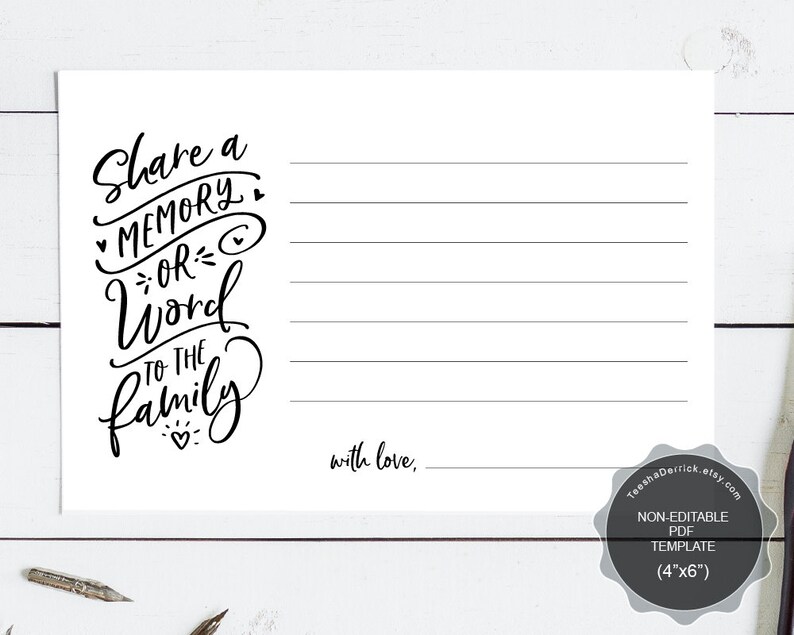 Share a
MEMORY
OR
Word
TO THE
family
with love,
TeeshaDerrick.etsy.com
NON-EDITABLE
PDF
TEMPLATE
(4”x6”)